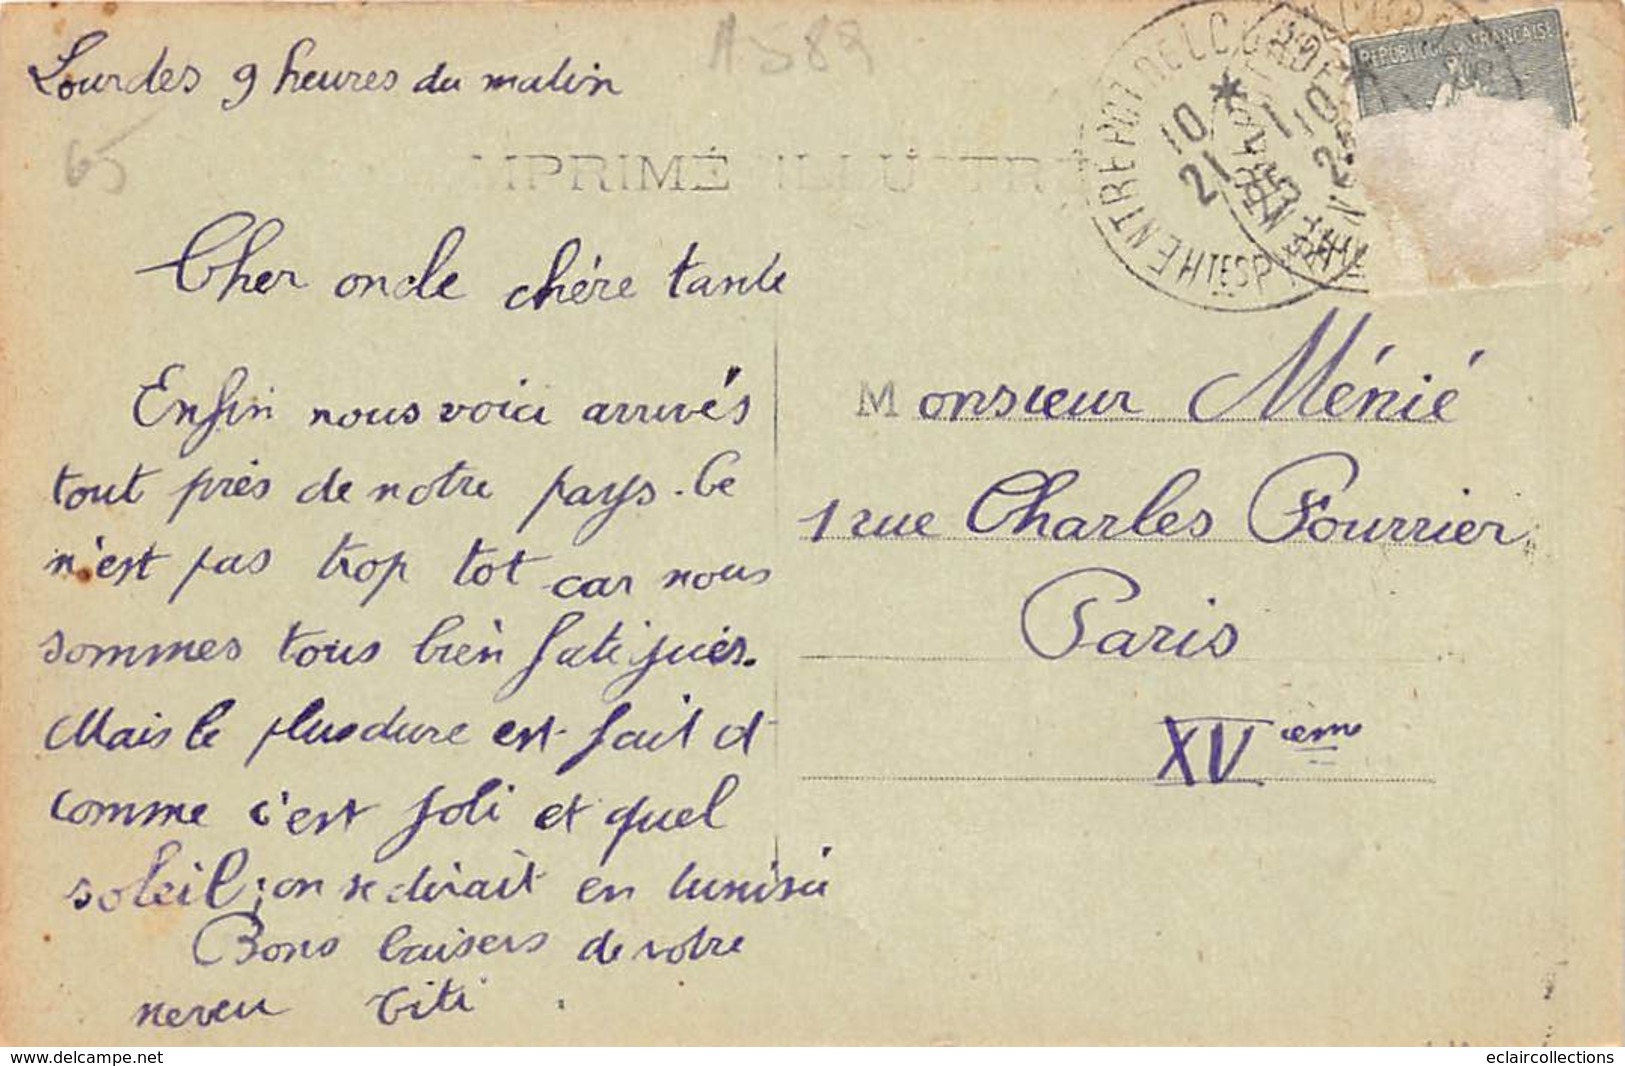 Lourdes 9 heures du matin
A 589
65
IMPRIMÉ ILLUSTRÉ
RÉPUBLIQUE FRANÇAISE
Cher oncle chère tante
Enfin nous voici arrivés
tout près de notre pays. Ce
n'est pas trop tot car nous
sommes tous bien fatigués.
Mais le plus dure est fait et
comme c'est joli et quel
soleil; on se dirait en tunisie
Bons baisers de votre
neveu Titi
Monsieur Ménié
1 rue Charles Fourrier
Paris
XV ièm
eclaircollections